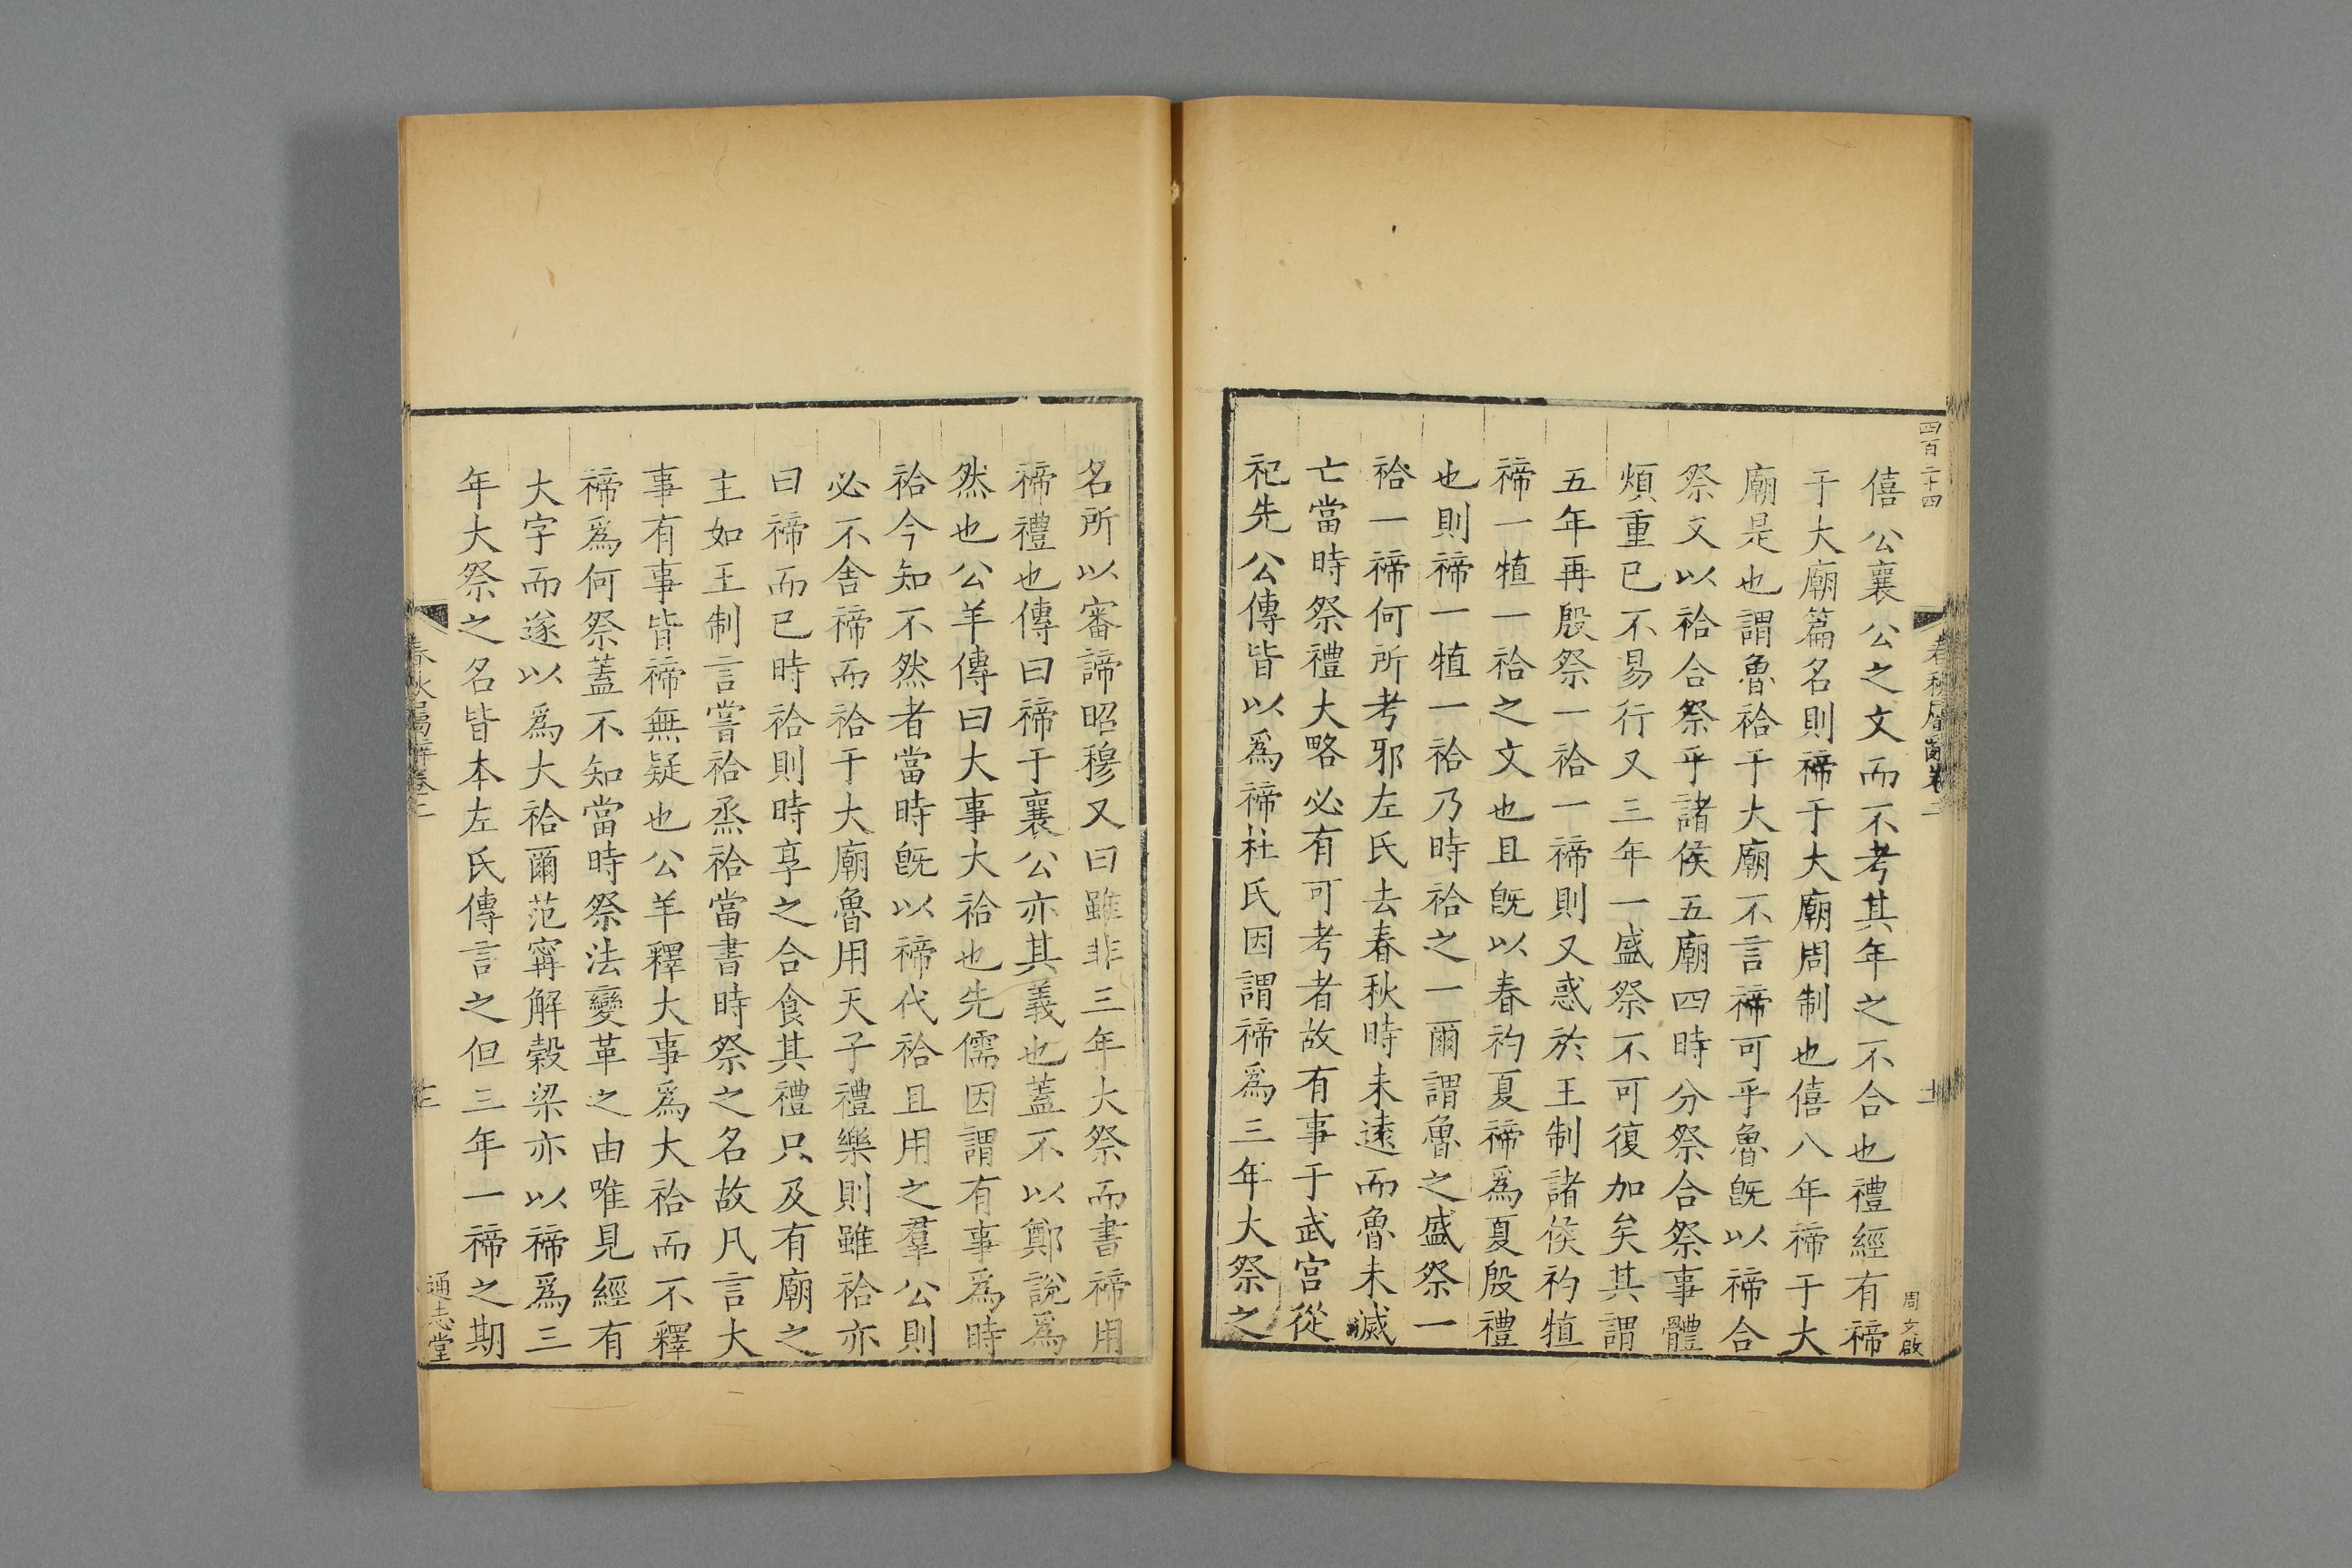 四百二十四
僖公襄公之文而不考其年之不合也禮經有禘
于大廟篇名則禘于大廟周制也僖八年禘于大
廟是也謂魯祫于大廟不言禘可乎魯旣以禘合
祭又以祫合祭乎諸侯五廟四時分祭合祭事體
煩重已不易行又三年一盛祭不可復加矣其謂
五年再殷祭一祫一禘則又惑於王制諸侯礿犆
禘一犆一祫之文也且旣以春礿夏禘爲夏殷禮
也則禘一犆一祫乃時祫之一爾謂魯之盛祭一
祫一禘何所考邪左氏去春秋時未遠而魯未滅
亡當時祭禮大略必有可考者故有事于武宮從
祀先公傳皆以爲禘杜氏因謂禘爲三年大祭之
周文啟
名所以審諦昭穆又曰雖非三年大祭而書禘用
禘禮也傳曰禘于襄公亦其義也蓋不以鄭說爲
然也公羊傳曰大事大祫也先儒因謂有事爲時
祫今知不然者當時旣以禘代祫且用之羣公則
必不舍禘而祫于大廟魯用天子禮樂則雖祫亦
曰禘而已時祫則時享之合食其禮只及有廟之
主如王制言嘗祫烝祫當書時祭之名故凡言大
事有事皆禘無疑也公羊釋大事爲大祫而不釋
禘爲何祭蓋不知當時祭法變革之由唯見經有
大字而遂以爲大祫爾范甯解榖梁亦以禘爲三
年大祭之名皆本左氏傳言之但三年一禘之期
春秋屬辭卷二
通志堂